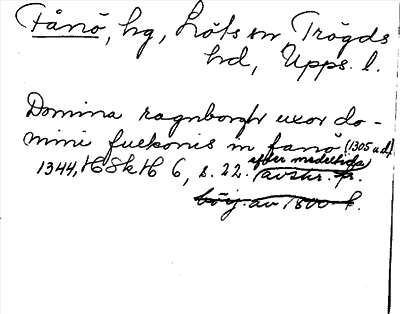 Fånö, hg, Löts sn Trögds
hd, Upps. l.
Domina ragnborgh uxor do-
mini fulkonis in fanö (1305 u.d.)
1344, HSkH 6, s. 22. efter medeltida
avskr. fr.
börj. av 1500-t.